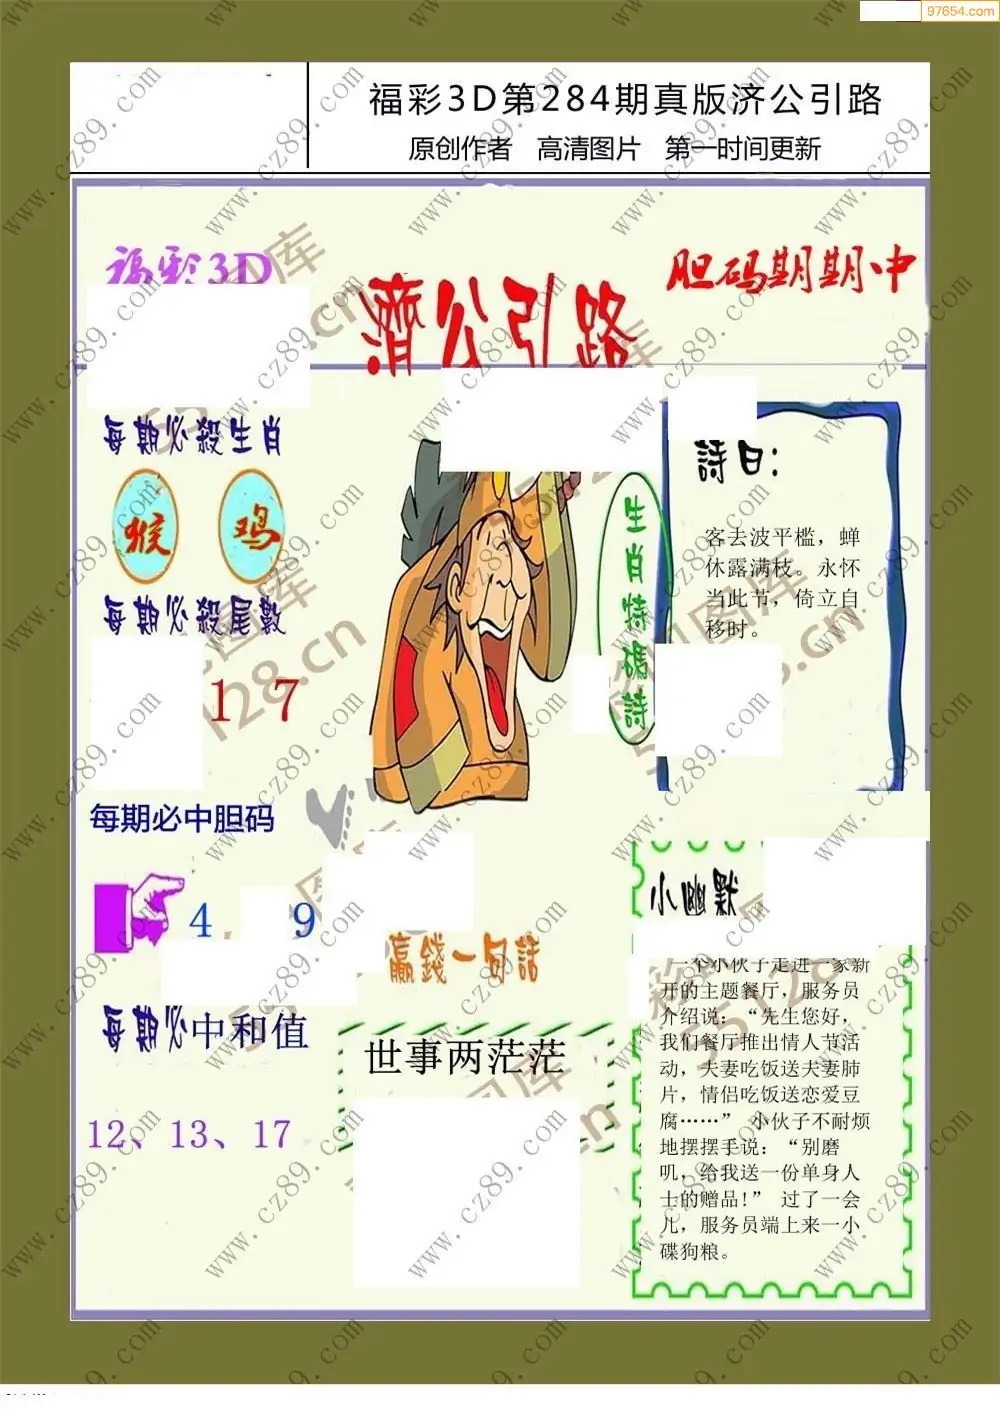 97654.com
福彩3D第284期真版济公引路
原创作者 高清图片 第一时间更新
福彩3D
濟公引路
胆码期期中
每期必殺生肖
猴 鸡
每期必殺尾數
1 7
每期必中胆码
4 9
每期必中和值
12、13、17
生肖特碼詩
詩曰:
客去波平槛，蝉
休露满枝。永怀
当此节，倚立自
移时。
贏錢一句話
世事两茫茫
小幽默
一个小伙子走进一家新
开的主题餐厅，服务员
介绍说：“先生您好，
我们餐厅推出情人节活
动，夫妻吃饭送夫妻肺
片，情侣吃饭送恋爱豆
腐……” 小伙子不耐烦
地摆摆手说：“别磨
叽，给我送一份单身人
士的赠品!” 过了一会
儿，服务员端上来一小
碟狗粮。
www.cz89.com
55128.cn